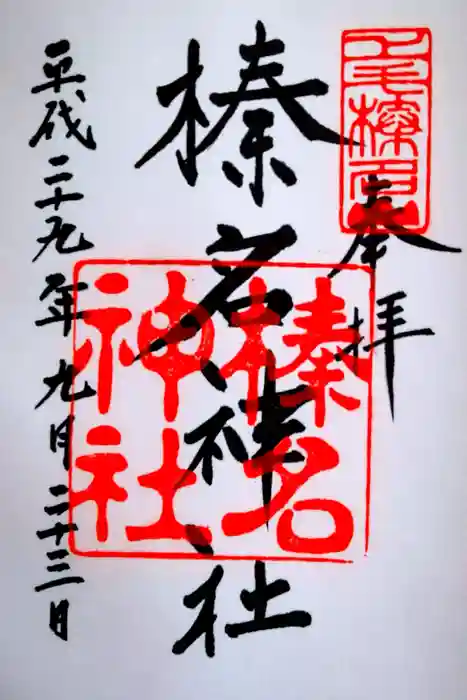 上毛榛名
奉拝
榛名神社
榛名
神社
平成二十九年九月二十三日